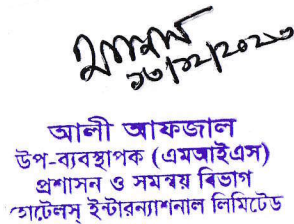 ১৩/১২/২০২৩
আলী আফজাল
উপ-ব্যবস্থাপক (এমআইএস)
প্রশাসন ও সমন্বয় বিভাগ
হোটেলস্ ইন্টারন্যাশনাল লিমিটেড